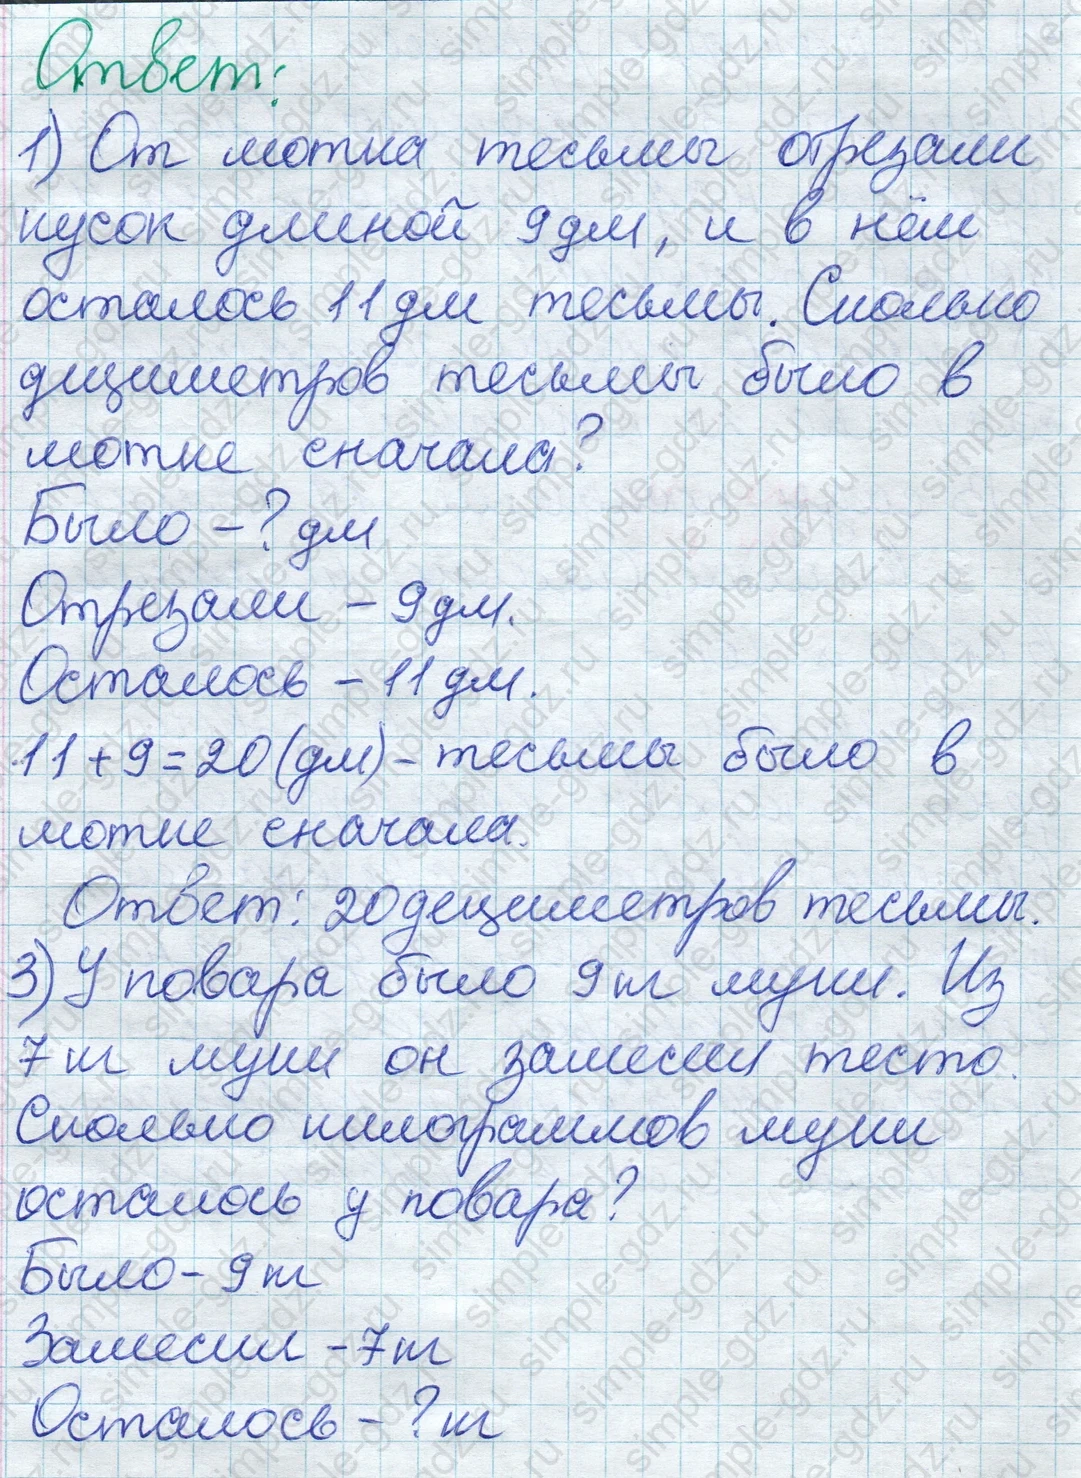 Ответ:
1) От мотка тесьмы отрезали
кусок длиной 9дм, и в нём
осталось 11дм тесьмы. Сколько
дициметров тесьмы было в
мотке сначала?
Было - ? дм
Отрезали - 9дм.
Осталось - 11дм.
11+9=20(дм)- тесьмы было в
мотке сначала.
Ответ: 20дециметров тесьмы.
3) У повара было 9кг муки. Из
7кг муки он замесил тесто.
Сколько килограммов муки
осталось у повара?
Было- 9кг
Замесил -7кг
Осталось - ?кг
simple-gdz.ru